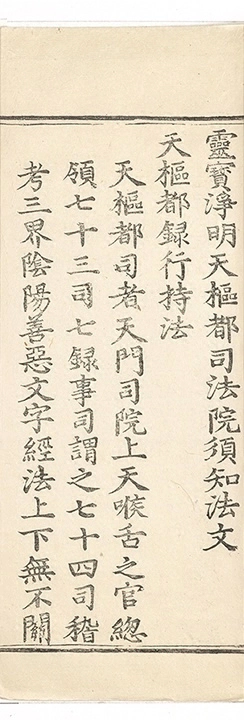 靈寶淨明天樞都司法院須知法文
天樞都録行持法
天樞都司者天門司院上天喉舌之官總
領七十三司七録事司謂之七十四司稽
考三界陰陽善惡文字經法上下無不關